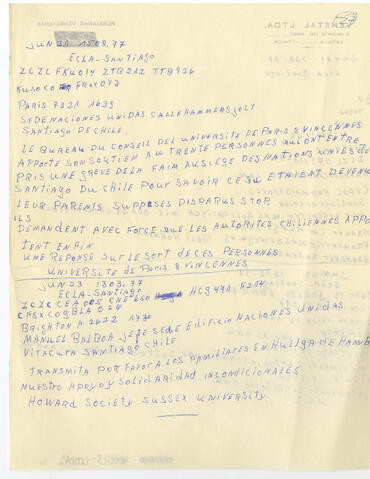 JUN 21 1508,77
ECLA-SANTIAGO
ZCZC FKU014 ZTB212 TTB926
FRXX 073
PARIS 7321 1639
SEDE NACIONES UNIDAS CALLEHAMMERSJOLT
SANTIAGO DE CHILE.
LE BUREAU DU CONSEIL DEL UNIVERSITE DE PARIS 8 VINCENNES
APPORTE SON SOUTIEN AU TRENTE PERSONNES QUI ONT ENTRE
PRIS UNE GREVE DE LA FAIM AUSIEGE DES NATIONS UNIES DE
SANTIAGO DU CHILE POUR SAVOIR CE QU ETAIENT DEVENU
LEUR PARENTS SUPPOSES DISPARUS STOP.
ILS
DEMANDENT AVEC FORCE QUE LES AUTORITES CHILIENNES APPO
TENT ENFIN
UNE REPONSE SUR LE SORT DE CES PERSONNES
UNIVERSITE DE PARIS 8 VINCENNES
JUN 23 1303,77
ECLA-SANTIAGO
ZCZC CEA005
BRIGHTON A 2622 1730
MANUEL BALBOA JEFE SEDE EDIFICIO NACIONES UNIDAS
VITACURA SANTIAGO CHILE
TRANSMITA POR FAVOR A LOS FAMILIARES EN HUELGA DE HAMB
NUESTRO APOYO Y SOLIDARIDAD INCONDICIONALES
HOWARD SOCIETY SUSSEX UNIVERSITY